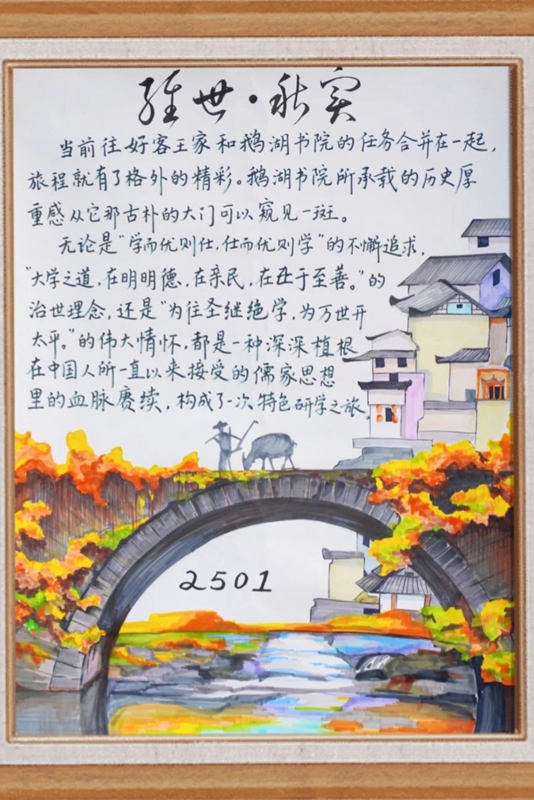 经世·秋实
当前往好客王家和鹅湖书院的任务合并在一起，
旅程就有了格外的精彩。鹅湖书院所承载的历史厚
重感从它那古朴的大门可以窥见一斑。
无论是“学而优则仕，仕而优则学”的不懈追求，
“大学之道，在明明德，在亲民，在止于至善。”的
治世理念，还是“为往圣继绝学，为万世开
太平。”的伟大情怀，都是一种深深植根
在中国人所一直以来接受的儒家思想
里的血脉赓续，构成了一次特色研学之旅。
2501